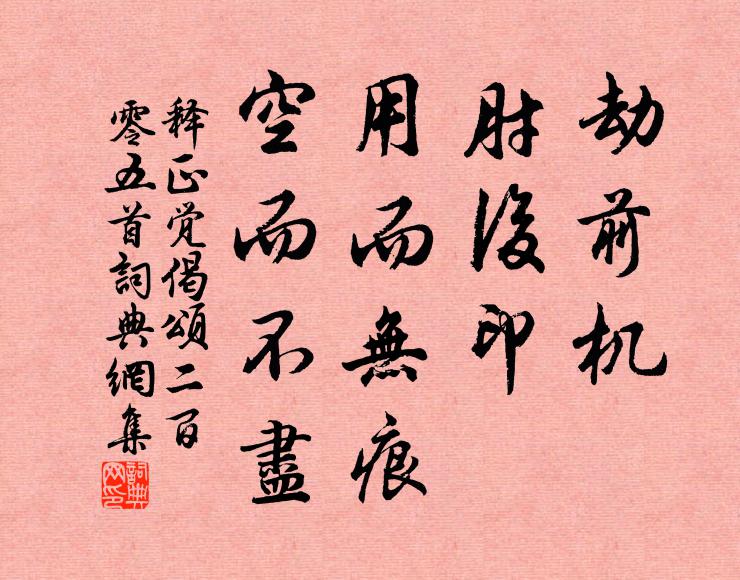 劫前机
肘後印
用而無痕
空而不盡
释正觉偈頌二百
零五首詞典網集
詞典网印